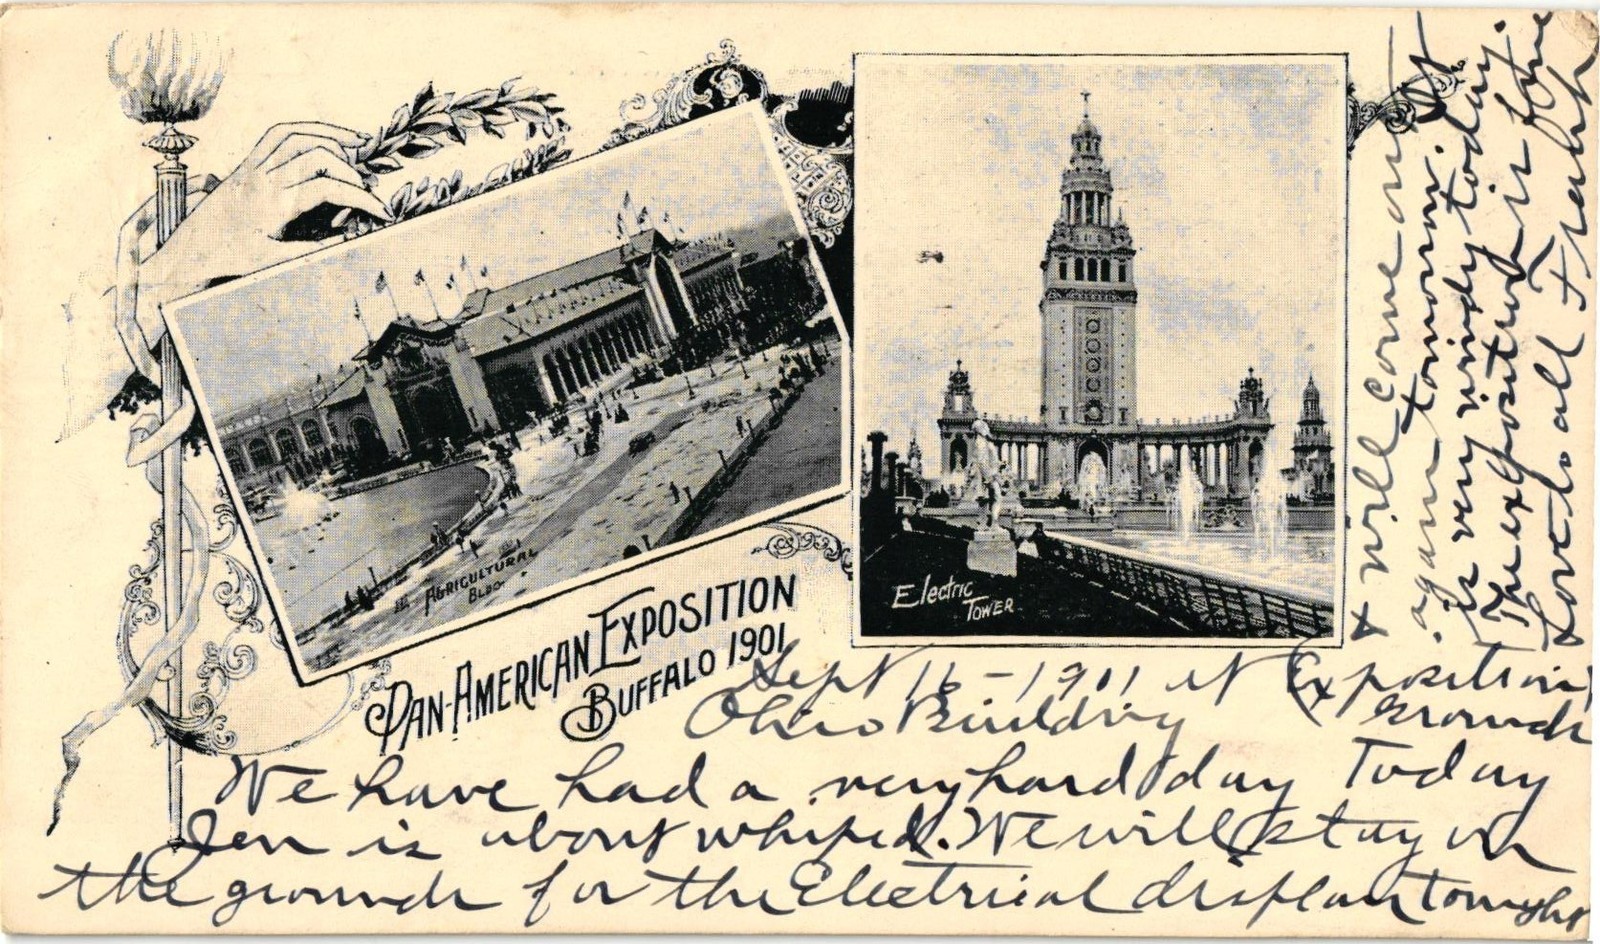 AGRICULTURAL
BLDG.
Electric
TOWER
PAN-AMERICAN EXPOSITION
BUFFALO 1901
Sept 16-1901 at Exposition
Ohio Building Grounds
We have had a very hard day Today
Jen is about whiped. We will stay on
the grounds for the Electrical display tonight
& will come out
again tomorrow. It
is very windy today.
The exposition is fine
Love to all Frank